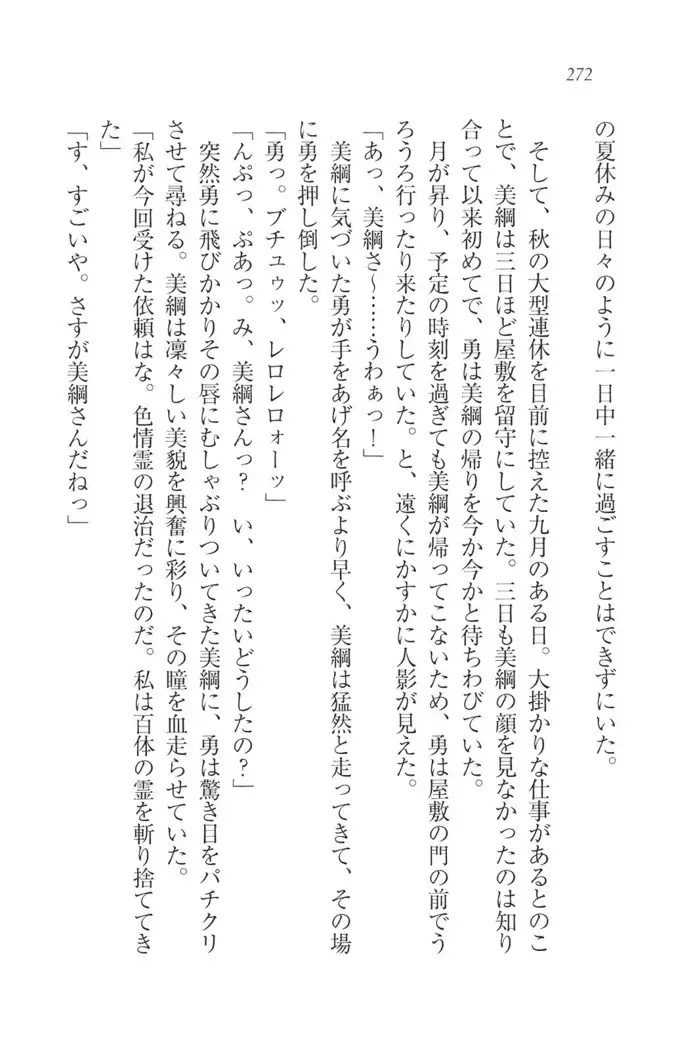 272
の夏休みの日々のように一日中一緒に過ごすことはできずにいた。
そして、秋の大型連休を目前に控えた九月のある日。大掛かりな仕事があるとのこ
とで、美綱は三日ほど屋敷を留守にしていた。三日も美綱の顔を見なかったのは知り
合って以来初めてで、勇は美綱の帰りを今か今かと待ちわびていた。
月が昇り、予定の時刻を過ぎても美綱が帰ってこないため、勇は屋敷の門の前でう
ろうろ行ったり来たりしていた。と、遠くにかすかに人影が見えた。
「あっ、美綱さ〜……うわぁっ!」
美綱に気づいた勇が手をあげ名を呼ぶより早く、美綱は猛然と走ってきて、その場
に勇を押し倒した。
「勇っ。ブチュゥッ、レロレロォーッ」
「んぷっ、ぷあっ。み、美綱さんっ? い、いったいどうしたの?」
突然勇に飛びかかりその唇にむしゃぶりついてきた美綱に、勇は驚き目をパチクリ
させて尋ねる。美綱は凜々しい美貌を興奮に彩り、その瞳を血走らせていた。
「私が今回受けた依頼はな。色情霊の退治だったのだ。私は百体の霊を斬り捨ててき
た」
「す、すごいや。さすが美綱さんだねっ」